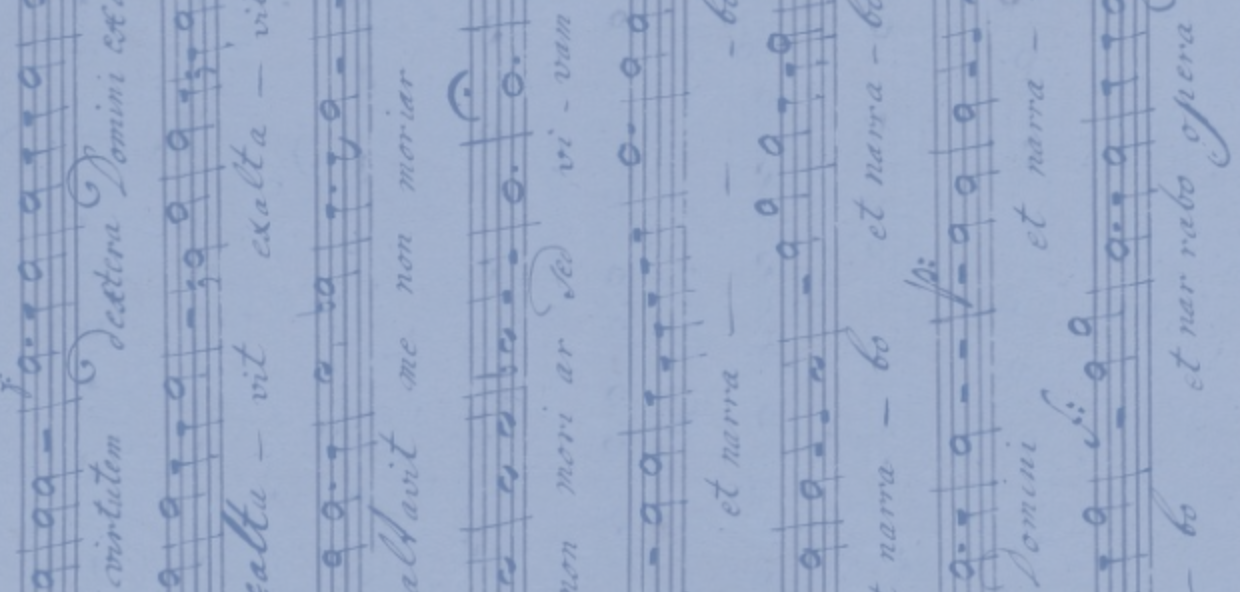 virtutem dextera Domini
exalta – vit exalta – vit
me non moriar
non mori ar sed vi - vam
et narra – – – bo
narra – bo et narra – bo
Domini et narra –
– bo et nar rabo opera